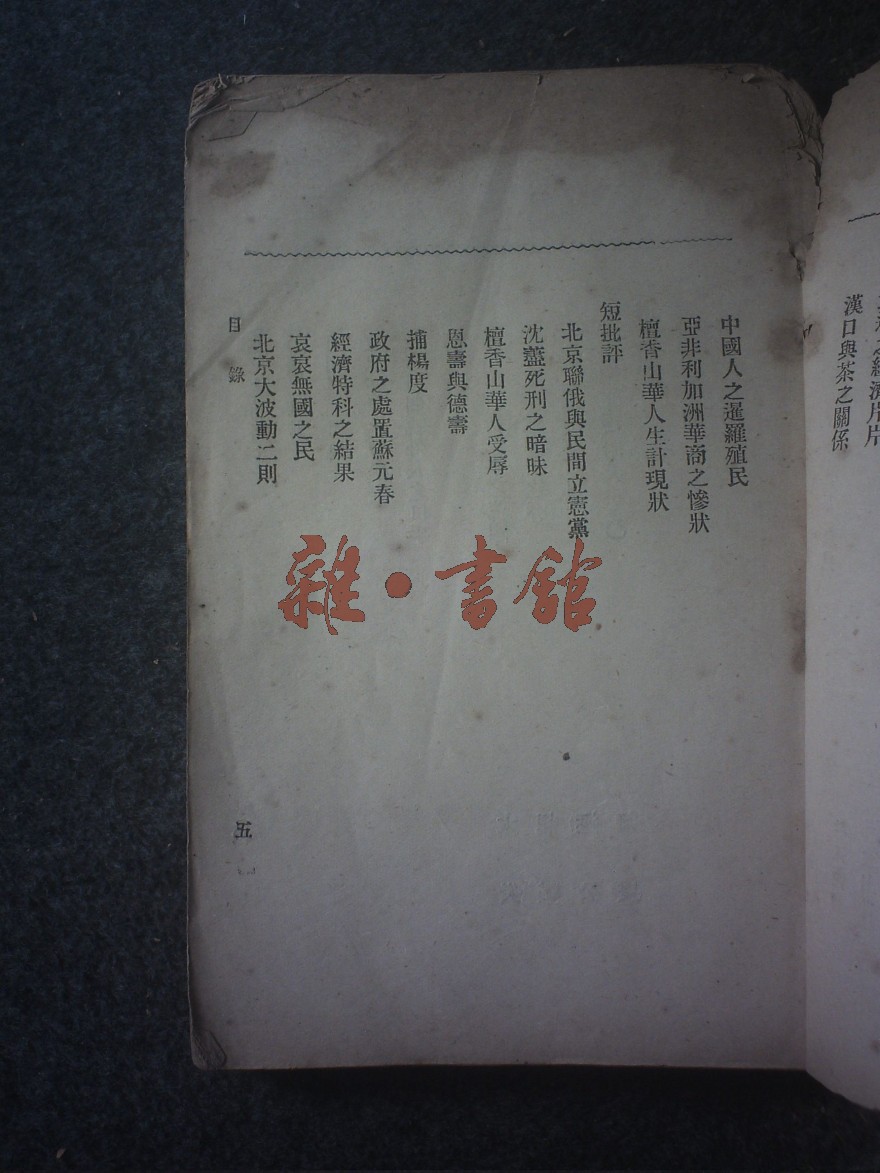 漢口與茶之關係
中國人之暹羅殖民
亞非利加洲華商之慘狀
檀香山華人生計現狀
短批評
北京聯俄與民間立憲黨
沈藎死刑之暗昧
檀香山華人受辱
恩壽與德壽
捕楊度
政府之處置蘇元春
經濟特科之結果
哀哀無國之民
北京大波動二則
目錄
五
雜·書館